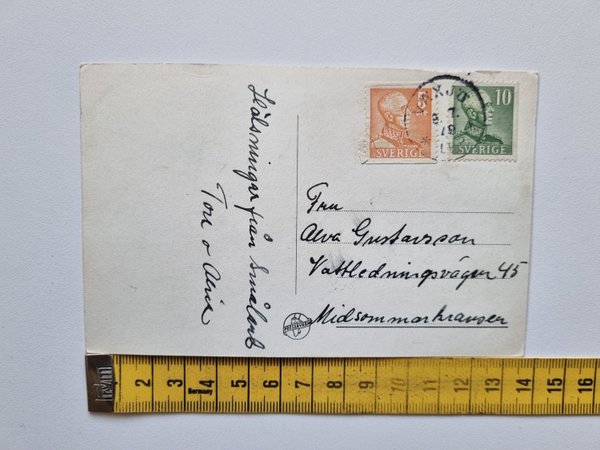 Hälsningar från Småland
Tore o Alva
5
SVERIGE
10
SVERIGE
VÄXJÖ
Fru
Alva Gustavsson
Vattledningsvägen 45
Midsommarkransen
2 3 4 5 6 7 8 9 10 11 12 13 14 15 16
Germany